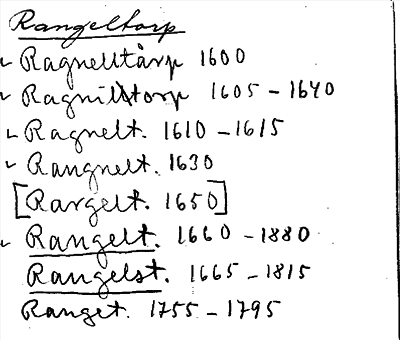 Rangeltorp
✓ Ragnelltårp 1600
✓ Ragnilstorp 1605 - 1640
✓ Ragnelt. 1610 - 1615
✓ Rangnelt. 1630
[Rargelt. 1650]
✓ Rangelt. 1660 - 1880
Rangelst. 1665 - 1815
Ranget. 1755 - 1795